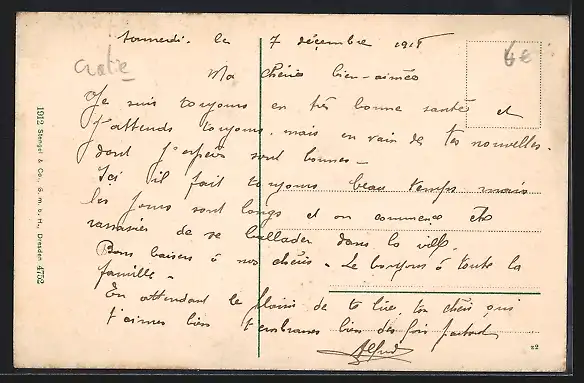 Samedi. le 7 décembre 1918
Ma chérie bien-aimée
Je suis toujours en très bonne santé et
j'attends toujours, mais en vain de tes nouvelles.
dont j'espère sont bonnes -
Ici il fait toujours beau temps mais
les jours sont longs et on commence être
rassasier de se ballader dans la ville.
Bons baisers à nos chéris - Le bonjour à toute la
famille -
En attendant le plaisir de te lire, ton chéri qui
t'aimes bien t'embrasses bien des fois partout
Alfred
Croatie
6€
1912 Stengel & Co., G. m. b. H., Dresden 4752
22